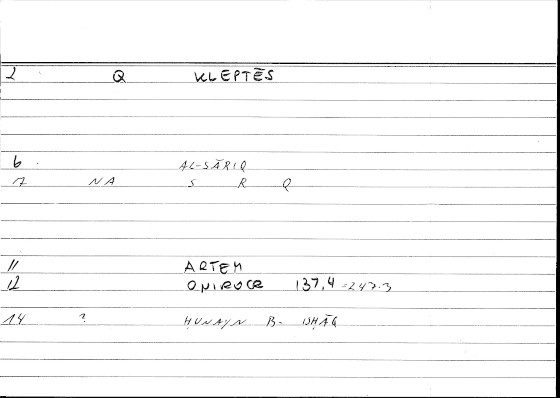 2 Q KLEPTĒS
6 AL-SĀRIQ
7 NA S R Q
11 ARTEM
12 ONIROCR 137,4 =247.3
14 ? ḤUNAYN B. ISḤĀQ